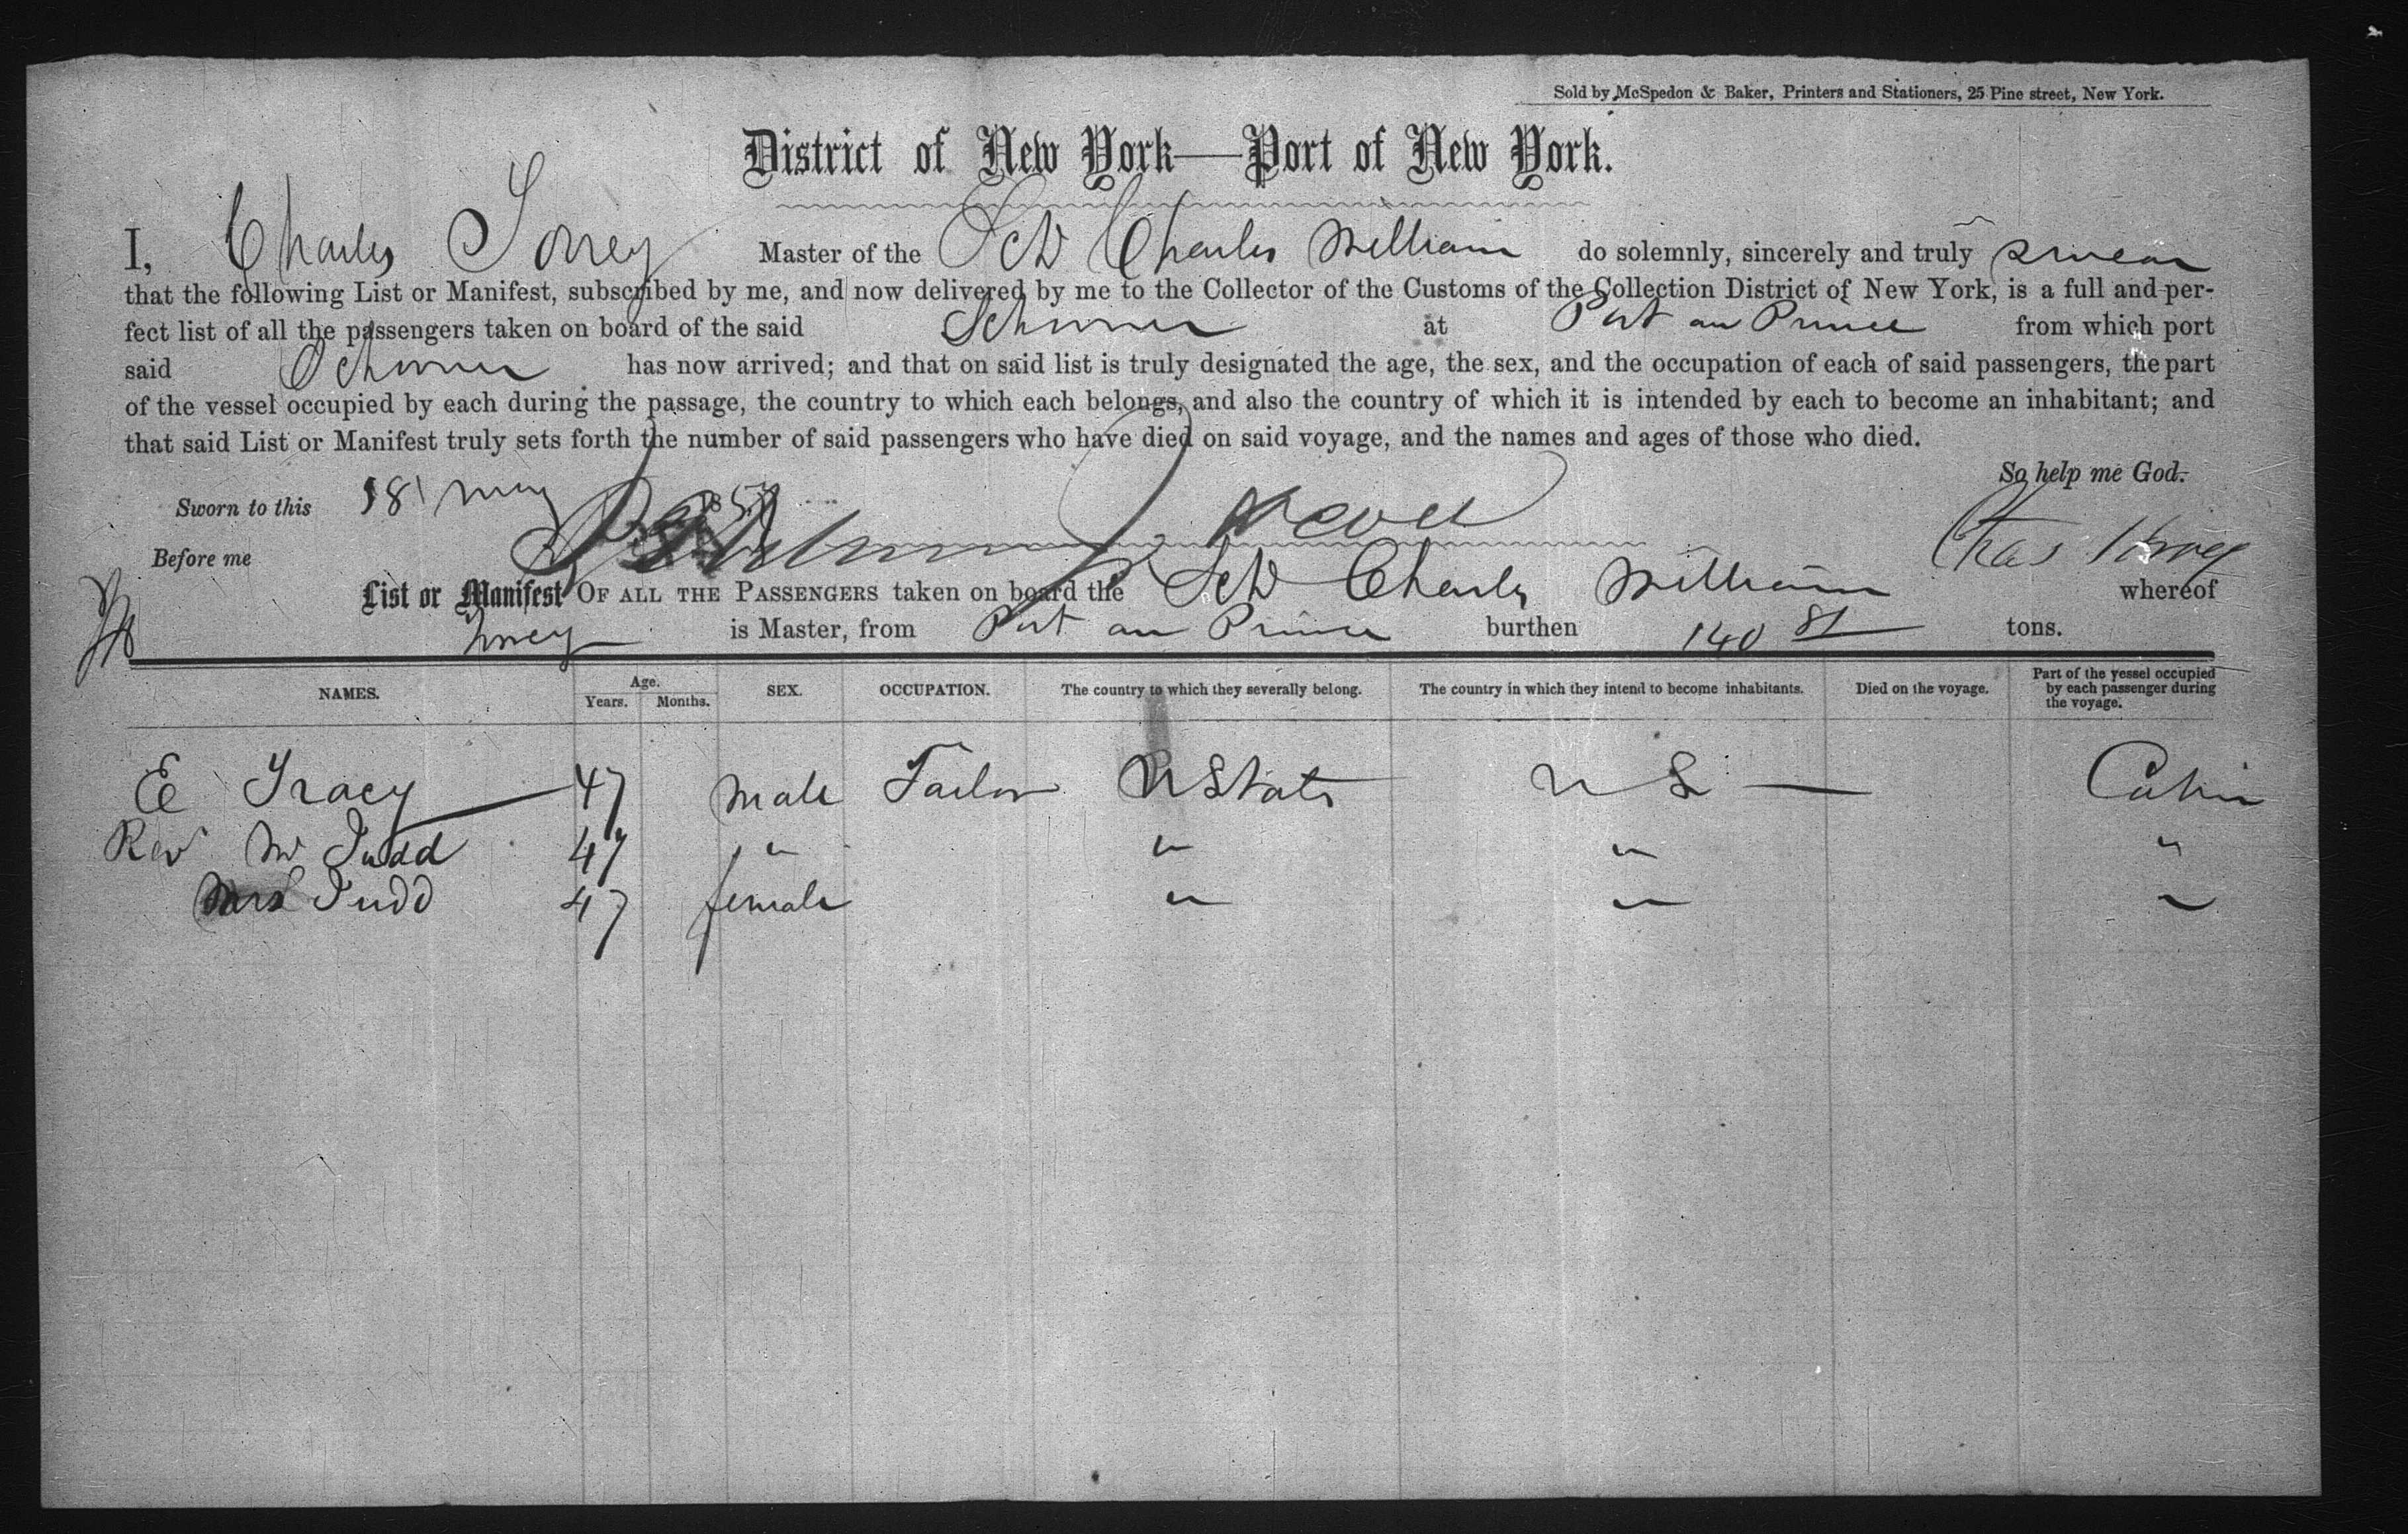 Sold by McSpedon & Baker, Printers and Stationers, 25 Pine street, New York.
District of New York—Port of New York.
I, Charles Torrey Master of the Sch Charles William do solemnly, sincerely and truly swear
that the following List or Manifest, subscribed by me, and now delivered by me to the Collector of the Customs of the Collection District of New York, is a full and per-
fect list of all the passengers taken on board of the said Schooner at Port au Prince from which port
said Schooner has now arrived; and that on said list is truly designated the age, the sex, and the occupation of each of said passengers, the part
of the vessel occupied by each during the passage, the country to which each belongs, and also the country of which it is intended by each to become an inhabitant; and
that said List or Manifest truly sets forth the number of said passengers who have died on said voyage, and the names and ages of those who died.
So help me God.
Sworn to this 18 May 185
Before me Chas Torrey
List or Manifest OF ALL THE PASSENGERS taken on board the Sch Charles William whereof
Torrey is Master, from Port au Prince burthen 140 81 tons.
NAMES. Age. Years. Months. SEX. OCCUPATION. The country to which they severally belong. The country in which they intend to become inhabitants. Died on the voyage. Part of the vessel occupied by each passenger during the voyage.
E Tracy 47 Male Tailor U States U S — Cabin
Rev W Judd 47 " " " "
Mrs Judd 47 female " " "